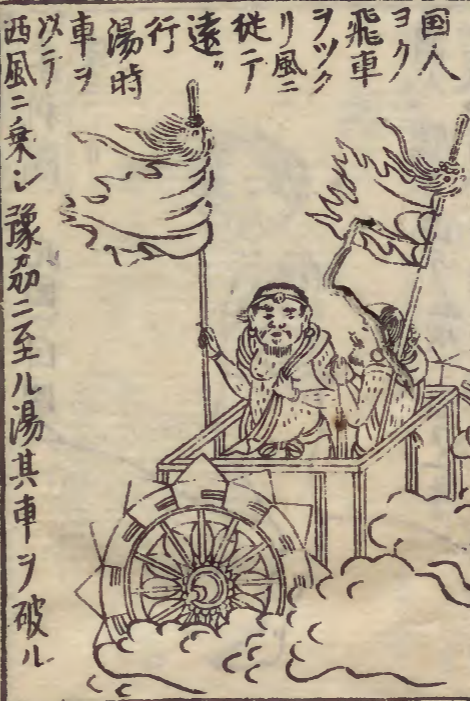 国人
ヨク
飛車
ヲツク
リ風ニ
従テ
遠ク
行
湯時
車ヲ
以テ
西風ニ乗シ豫劦ニ至ル湯其車ヲ破ル